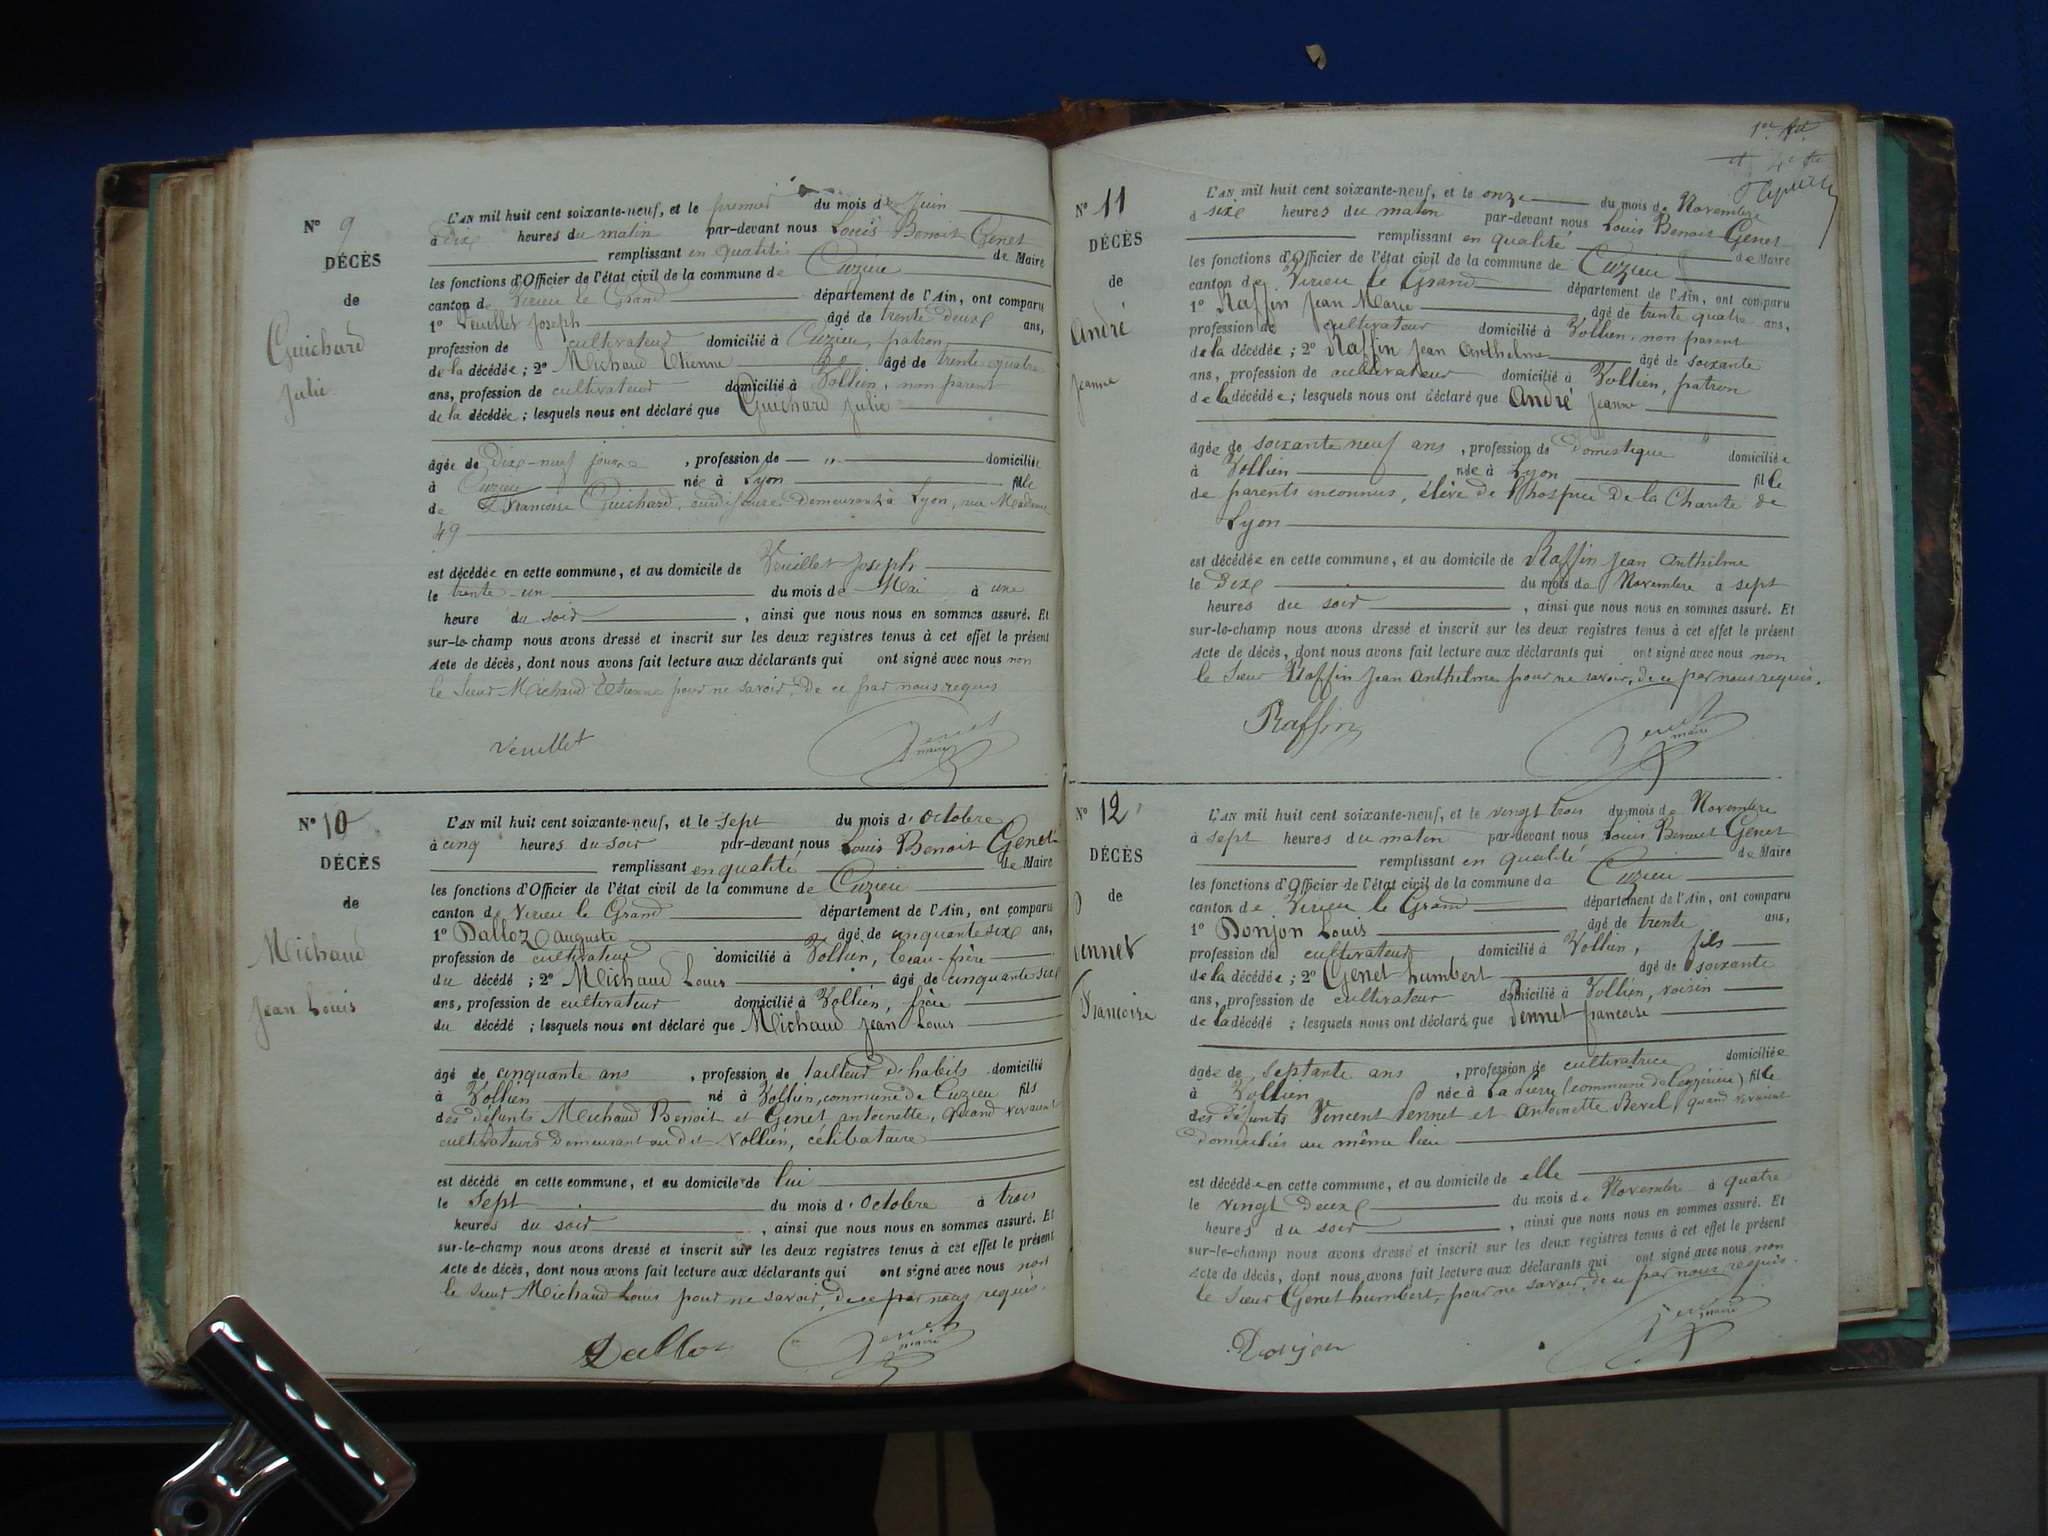 N° 9
DÉCÈS
de
Guichard
Julie
L'AN mil huit cent soixante-neuf, et le premier du mois de Juin
à Dix heures du matin par-devant nous Louis Benoit Genet
remplissant en qualité de Maire
les fonctions d'Officier de l'état civil de la commune de Cuzieu
canton de Virieu le Grand département de l'Ain, ont comparu
1° Veuillet Joseph âgé de trente deux ans,
profession de cultivateur domicilié à Cuzieu, patron
de la décédée ; 2° Michaud Etienne âgé de trente quatre
ans, profession de cultivateur domicilié à Vollien, non parent
de la décédée ; lesquels nous ont déclaré que Guichard Julie
âgée de Dix-neuf jours , profession de — " — domiciliée
à Cuzieu née à Lyon fille
de Françoise Guichard, ourdisseuse Demeurant à Lyon, rue Madame
49
est décédée en cette commune, et au domicile de Veuillet Joseph
le trente-un du mois de Mai à une
heure du soir , ainsi que nous nous en sommes assuré. Et
sur-le-champ nous avons dressé et inscrit sur les deux registres tenus à cet effet le présent
acte de décès, dont nous avons fait lecture aux déclarants qui ont signé avec nous non
le Sieur Michaud Etienne pour ne savoir, De ce par nous requis
Veuillet Genet maire
N° 10
DÉCÈS
de
Michaud
Jean Louis
L'AN mil huit cent soixante-neuf, et le sept du mois d'Octobre
à cinq heures du soir par-devant nous Louis Benoit Genet
remplissant en qualité de Maire
les fonctions d'Officier de l'état civil de la commune de Cuzieu
canton de Virieu le Grand département de l'Ain, ont comparu
1° Dalloz Auguste âgé de cinquante six ans,
profession de cultivateur domicilié à Vollien, beau-frère
du décédé ; 2° Michaud Louis âgé de cinquante six
ans, profession de cultivateur domicilié à Vollien, frère
du décédé ; lesquels nous ont déclaré que Michaud Jean Louis
âgé de cinquante ans , profession de tailleur D'habits domicilié
à Vollien né à Vollien, commune de Cuzieu fils
des Défunts Michaud Benoit et Genet antoinette, Quand vivaient
cultivateurs Demeurant au dit Vollien, célibataire
est décédé en cette commune, et au domicile de lui
le Sept du mois d'Octobre à trois
heures du soir , ainsi que nous nous en sommes assuré. Et
sur-le-champ nous avons dressé et inscrit sur les deux registres tenus à cet effet le présent
acte de décès, dont nous avons fait lecture aux déclarants qui ont signé avec nous non
le Sieur Michaud Louis pour ne savoir, de ce par nous requis.
Dalloz Genet maire
N° 11
DÉCÈS
de
André
Jeanne
L'AN mil huit cent soixante-neuf, et le onze du mois de Novembre
à six heures du matin par-devant nous Louis Benoit Genet
remplissant en qualité de Maire
les fonctions d'Officier de l'état civil de la commune de Cuzieu
canton de Virieu le Grand département de l'Ain, ont comparu
1° Raffin Jean Marie âgé de trente quatre ans,
profession de cultivateur domicilié à Vollien, non parent
de la décédée ; 2° Raffin Jean Anthelme âgé de soixante
ans, profession de cultivateur domicilié à Vollien, patron
de la décédée ; lesquels nous ont déclaré que André Jeanne
âgée de soixante neuf ans , profession de Domestique domiciliée
à Vollien née à Lyon fille
de parents inconnus, élève de l'hospice De la Charité de
Lyon
est décédée en cette commune, et au domicile de Raffin Jean Anthelme
le Dix du mois de Novembre à sept
heures du soir , ainsi que nous nous en sommes assuré. Et
sur-le-champ nous avons dressé et inscrit sur les deux registres tenus à cet effet le présent
acte de décès, dont nous avons fait lecture aux déclarants qui ont signé avec nous non
le Sieur Raffin Jean Anthelme pour ne savoir, de ce par nous requis.
Raffin Genet maire
N° 12
DÉCÈS
de
Pennet
Françoise
L'AN mil huit cent soixante-neuf, et le vingt trois du mois de Novembre
à sept heures du matin par-devant nous Louis Benoit Genet
remplissant en qualité de Maire
les fonctions d'Officier de l'état civil de la commune de Cuzieu
canton de Virieu le Grand département de l'Ain, ont comparu
1° Donjon Louis âgé de trente ans,
profession de cultivateur domicilié à Vollien, fils
de la décédée ; 2° Genet humbert âgé de soixante
ans, profession de cultivateur domicilié à Vollien, voisin
de la décédé ; lesquels nous ont déclaré que Pennet françoise
âgée de septante ans , profession de cultivatrice domiciliée
à Vollien née à La Pierre (commune de Ceyzérieu) fille
des Défunts Vincent Pennet et Antoinette Revel, quand vivaient
Domiciliés au même lieu
est décédée en cette commune, et au domicile de elle
le vingt Deux du mois de Novembre à quatre
heures du soir , ainsi que nous nous en sommes assuré. Et
sur-le-champ nous avons dressé et inscrit sur les deux registres tenus à cet effet le présent
acte de décès, dont nous avons fait lecture aux déclarants qui ont signé avec nous non
le Sieur Genet humbert, pour ne savoir, de ce par nous requis.
Donjon Genet maire